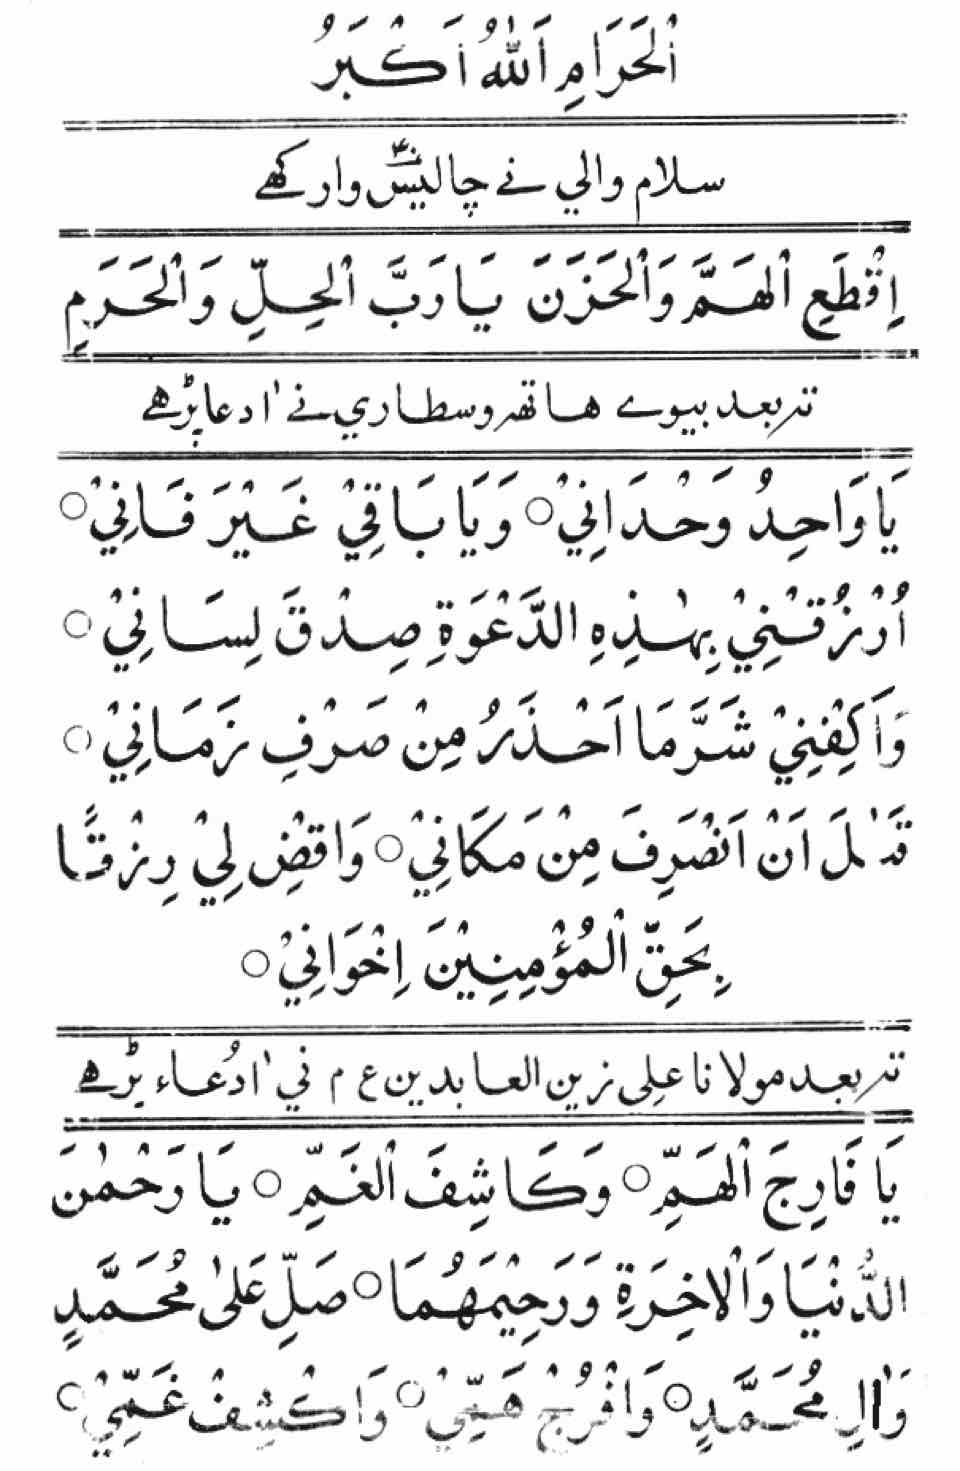 اَلْحَرَامِ اَللّٰهُ اَكْبَرُ
سلام والي نے چاليسؔ ٤٠ وار كهے
اِقْطَعِ الْهَمَّ وَالْحَزَنَ يَا رَبَّ الْحِلِّ وَالْحَرَمِ
تربعد بيوے هاتهر وسطاري نے اٰ دعا پڑهے
يَا وَاحِدُ وَحْدَانِيْ ○ وَيَا بَاقِيْ غَيْرَ فَانِيْ ○
اُرْزُقْنِيْ بِهٰذِهِ الدَّعْوَةِ صِدْقَ لِسَانِيْ ○
وَاَكِفْنِيْ شَرَّ مَا اَحْذَرُ مِنْ صَرْفِ زَمَانِيْ ○
قَبْلَ اَنْ اَنْصَرِفَ مِنْ مَكَانِيْ ○ وَاقْضِ لِيْ رِزْقًا
بِحَقِّ الْمُؤْمِنِيْنَ اِخْوَانِيْ ○
تربعد مولانا علِي زين العابدين ع م ني اٰ دُعاء پڑهے
يَا فَارِجَ الْهَمِّ ○ وَكَاشِفَ الْغَمِّ ○ يَا رَحْمٰنَ
الدُّنْيَا وَالْاٰخِرَةِ وَرَحِيْمَهُمَا ○ صَلِّ عَلىٰ مُحَمَّدٍ
وَاٰلِ مُحَمَّدٍ ○ وَافْرُجْ هَمِّيْ ○ وَاكْشِفْ غَمِّيْ ○